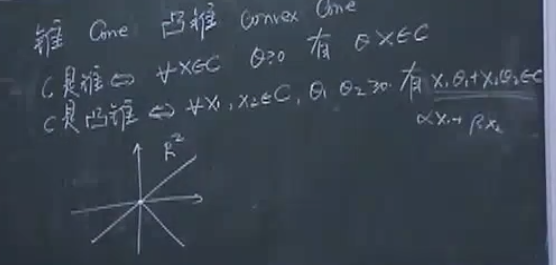 锥 Cone 凸锥 Convex Cone
C是锥 ⇔ ∀x∈C θ≥0 有 θx∈C
C是凸锥 ⇔ ∀x₁,x₂∈C, θ₁ θ₂≥0 有 x₁θ₁+x₂θ₂∈C
αx₁+βx₂
R²